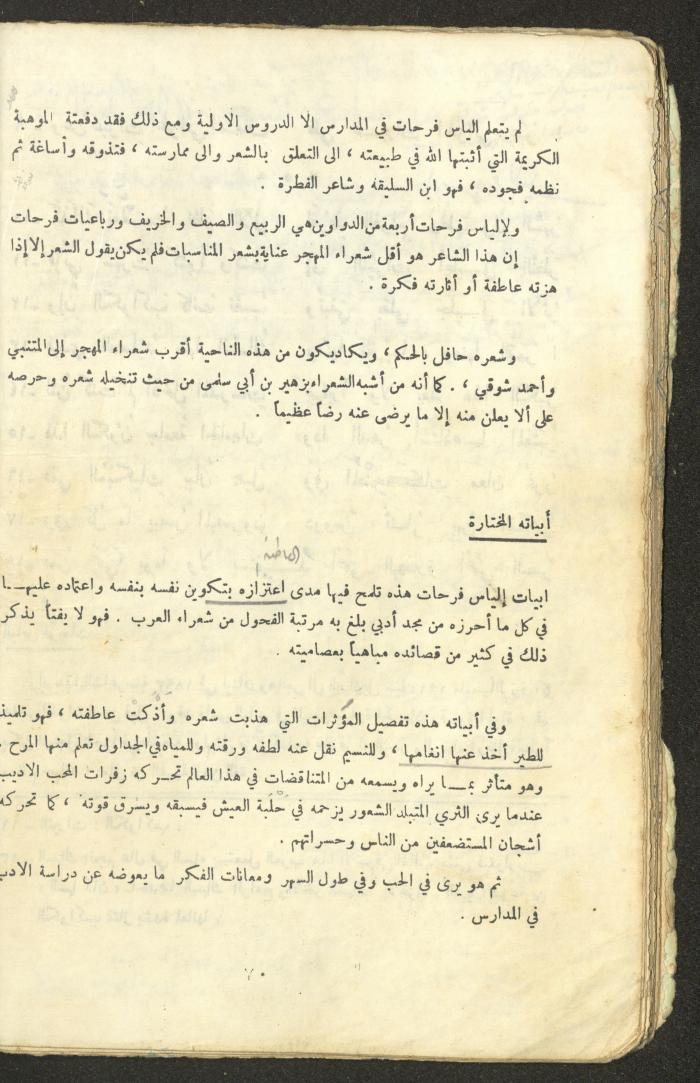 لم يتعلم الياس فرحات في المدارس الا الدروس الاولية ومع ذلك فقد دفعتة الموهبة
الكريمة التي أثبتها الله في طبيعته ، الى التعلق بالشعر والى ممارسته ، فتذوقه وأساغة ثم
نظمه فجوده ، فهو ابن السليقه وشاعر الفطرة .
ولإلياس فرحات أربعة من الدواوين هي الربيع والصيف والخريف ورباعيات فرحات
إن هذا الشاعر هو أقل شعراء المهجر عناية بشعر المناسبات فلم يكن يقول الشعر إلا إذا
هزته عاطفة أو أثارته فكرة .
وشعره حافل بالحكم ، ويكاد يكون من هذه الناحية أقرب شعراء المهجر إلى المتنبي
وأحمد شوقي ، . كما أنه من أشبه الشعراء بزهير بن أبي سلمى من حيث تنخيله شعره وحرصه
على ألا يعلن منه إلا ما يرضى عنه رضاً عظيماً .
أبياته المختارة
ابيات إلياس فرحات هذه تلمح فيها مدى اعتزازه بتكوين نفسه بنفسه واعتماده عليهـــا
في كل ما أحرزه من مجد أدبي بلغ به مرتبة الفحول من شعراء العرب . فهو لا يفتأ يذكر
ذلك في كثير من قصائده مباهياً بعصاميته .
وفي أبياته هذه تفصيل المؤثرات التي هذبت شعره وأذكت عاطفته ، فهو تلميذ
للطير أخذ عنها انغامها ، وللنسيم نقل عنه لطفه ورقته وللمياه في الجداول تعلم منها المرح .
وهو متأثر بمـــا يراه ويسمعه من المتناقضات في هذا العالم تحـركه زفرات المحب الاديب
عندما يرى الثري المتبلد الشعور يزحمه في حلبة العيش فيسبقه ويسرق قوته ، كما تحركه
أشجان المستضعفين من الناس وحسراتهم .
ثم هو يرى في الحب وفي طول السهر ومعانات الفكر ما يعوضه عن دراسة الادب
في المدارس .